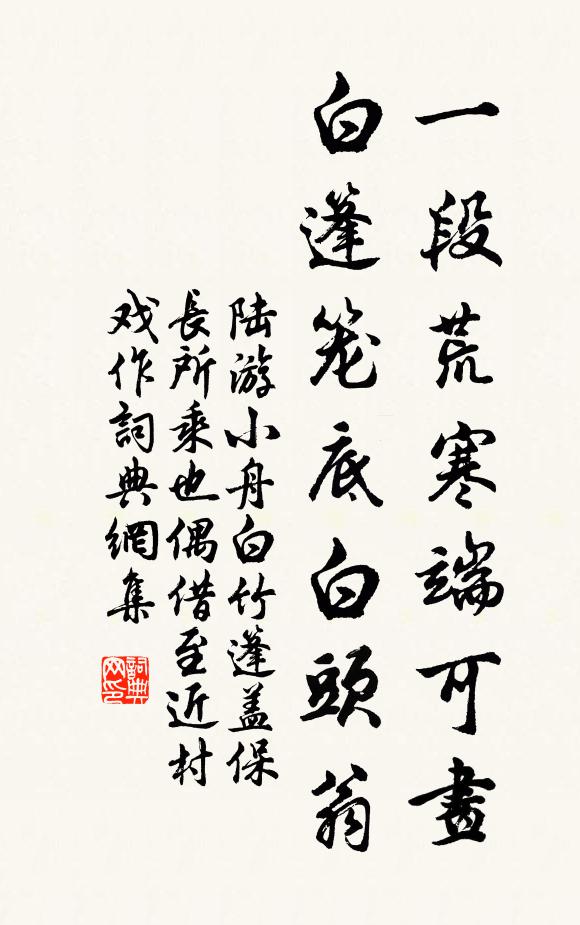 一段荒寒端可畫
白篷笼底白頭翁
陆游小舟白竹篷盖保
長所乘也偶借至近村
戏作詞典網集
詞典网印